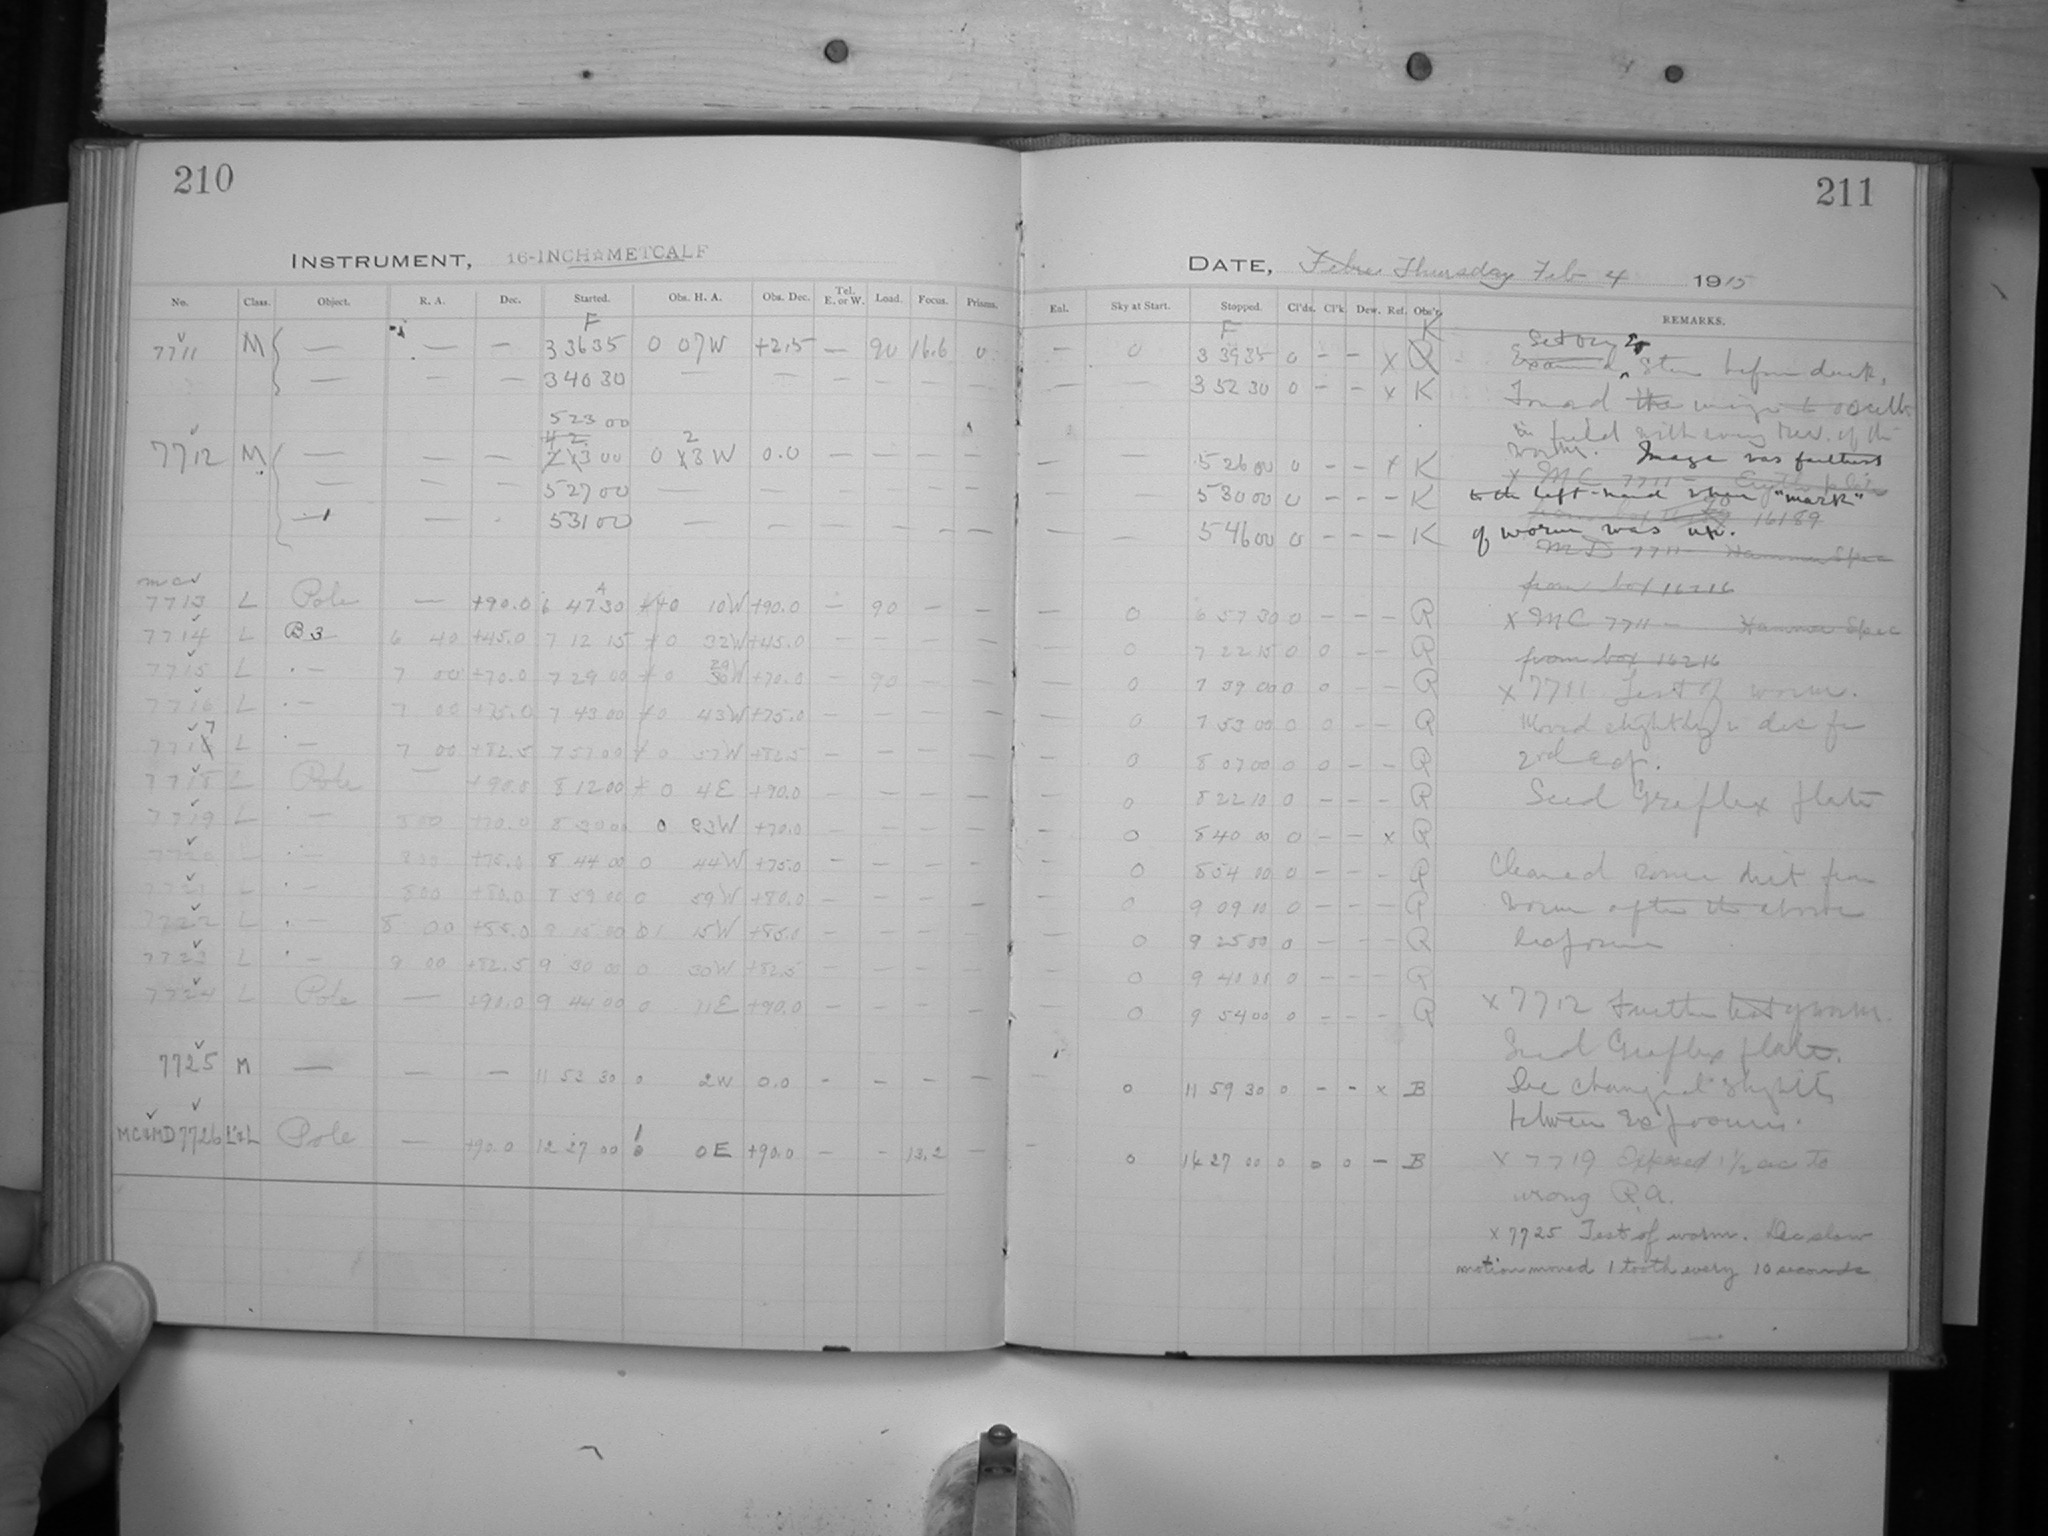 210
INSTRUMENT, 16-INCH METCALF
No. Class. Object. R. A. Dec. Started. Obs. H. A. Obs. Dec. Tel. E. or W. Load. Focus. Prisms.
F
7711 M — — — 3 36 35 0 07W +2.5 — 90 16.6 0
— — — 3 40 30 — — — — — —
5 23 00
7712 M — — — 0 23W 0.0 — — — —
— — — 5 27 00 — — — — — —
— — 5 31 00 — — — — — —
mc
7713 L Pole — +90.0 6 47 30 0 10W +90.0 — 90 — —
7714 L B3 6 40 +45.0 7 12 15 0 32W +45.0 — — — —
7715 L " — 7 00 +70.0 7 29 00 0 29W +70.0 — 90 — —
7716 L " — 7 00 +75.0 7 43 00 0 43W +75.0 — — — —
7717 L " — 7 00 +82.5 7 57 00 0 57W +82.5 — — — —
7718 L Pole — +90.0 8 12 00 0 4E +90.0 — — — —
7719 L " — 8 00 +70.0 8 30 00 0 33W +70.0 — — — —
7720 L " — 8 00 +75.0 8 44 00 0 44W +75.0 — — — —
7721 L " — 8 00 +80.0 8 59 00 0 59W +80.0 — — — —
7722 L " — 8 00 +85.0 9 15 00 01 15W +85.0 — — — —
7723 L " — 9 00 +82.5 9 30 00 0 30W +82.5 — — — —
7724 L Pole — +90.0 9 44 00 0 11E +90.0 — — — —
7725 M — — — 11 53 30 0 2W 0.0 — — — —
MC&MD 7726 L&L Pole — +90.0 12 27 00 0E +90.0 — — 13.2 —
211
DATE, Thursday Feb 4 1915
Enl. Sky at Start. Stopped. Cl'ds. Cl'k. Dew. Ref. Obs'r. REMARKS.
F K
— 0 3 39 35 0 — — x
— — 3 52 30 0 — — x K
— — 5 26 00 0 — — x K
— — 5 30 00 0 — — — K
— — 5 46 00 0 — — — K
— 0 6 57 30 0 — — — R
— 0 7 22 15 0 0 — — R
— 0 7 39 00 0 0 — — R
— 0 7 53 00 0 0 — — R
— 0 8 07 00 0 0 — — R
— 0 8 22 10 0 — — — R
— 0 8 40 00 0 — — x R
— 0 8 54 00 0 — — — R
— 0 9 09 10 0 — — — R
— 0 9 25 00 0 — — — R
— 0 9 40 01 0 — — — R
— 0 9 54 00 0 — — — R
— 0 11 59 30 0 — — x B
— 0 14 27 00 0 0 0 — B
Set on
Stars before dark.
Found
in field with every rev. of the
worm. Image was farthest
to the left-hand when "mark"
of worm was up.
MD 7711 — Hammer Spec
from box 16216
x MC 7711 — Hammer Spec
from box 16216
x 7711 Test of worm.
Moved slightly in dec for
2nd exp.
Seed Graflex plate
Cleaned some dirt from
worm after the above
exposure
x 7712 Further test of worm.
Seed Graflex plate.
Dec changed slightly
between exposures.
x 7719 Exposed 1 1/2 sec to
wrong R.A.
x 7725 Test of worm. Dec slow
motion moved 1 tooth every 10 seconds